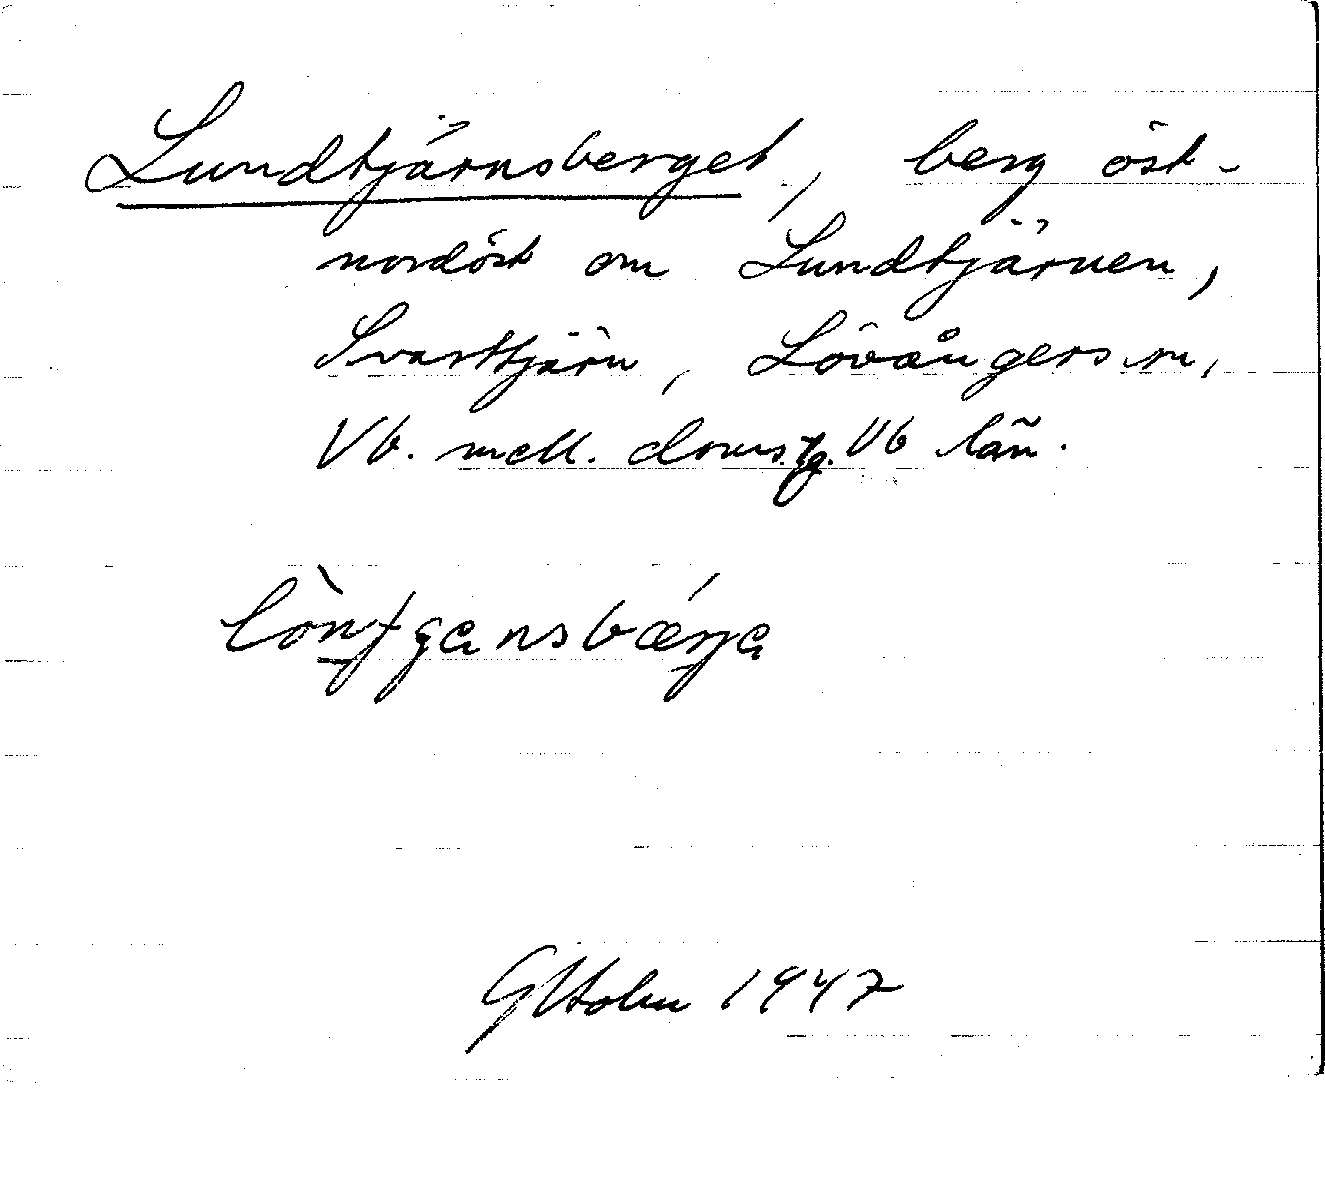 Lundtjärnsberget, berg öst-
nordöst om Lundtjärnen,
Svarttjärn, Lövångers sn,
Vb. mell. doms.tg. Vb län.
GHolm 1947